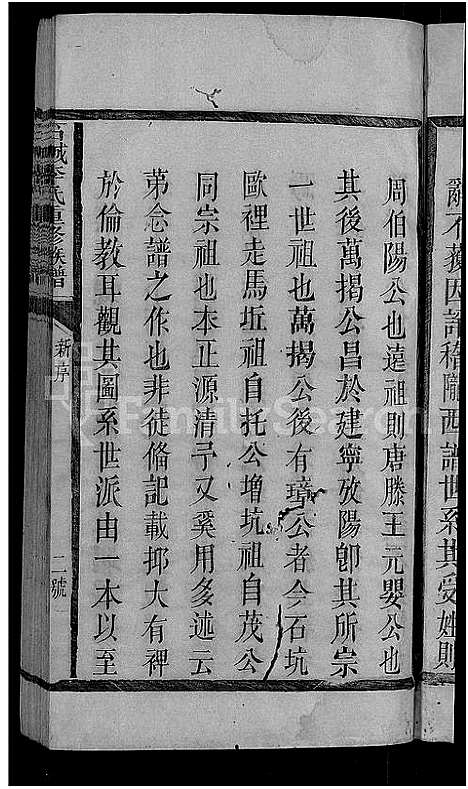 辭不獲因諦稽隴西譜世系其受姓則
周伯陽公也遠祖則唐滕王元嬰公也
其後萬揭公昌於建寧攸陽卽其所宗
一世祖也萬揭公後有璋公者今石坑
歐裡走馬坵祖自托公增坑祖自茂公
同宗祖也本正源清予又奚用多述云
苐念譜之作也非徒俻記載抑大有裨
於倫教耳觀其圖系世派由一本以至
城李氏重修族譜
新序
二號
FamilySearch